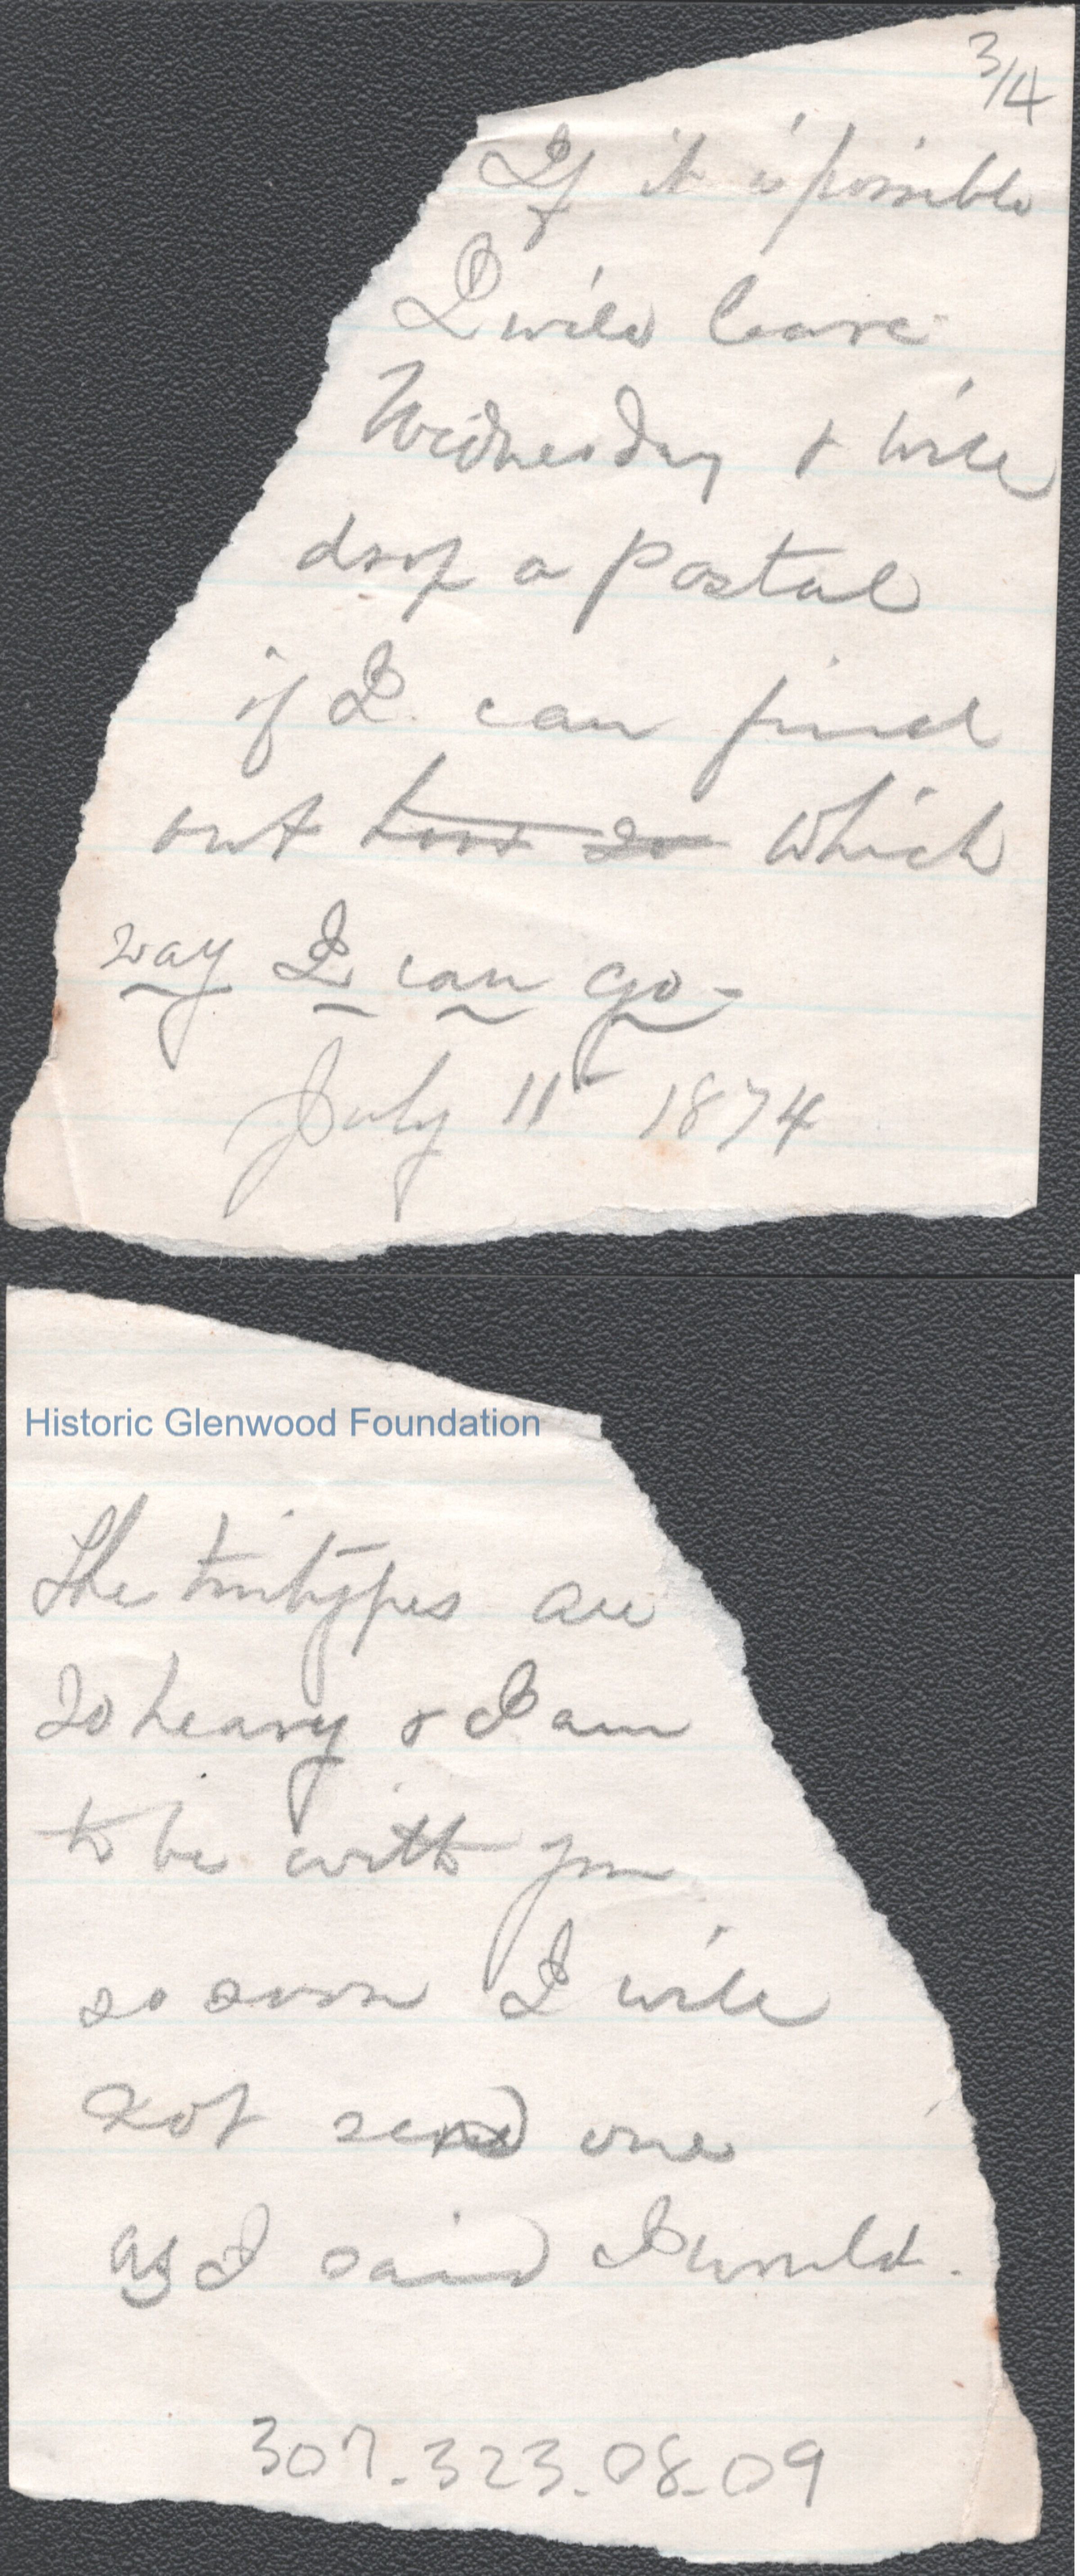 3/4
If it is possible
I will leave
Wednesday & will
drop a postal
if I can find
out which
way I can go-
July 11th 1874
Historic Glenwood Foundation
The tintypes are
so heavy & I am
to be with you
so soon I will
not send one
as I said I would.
307.323.08.09